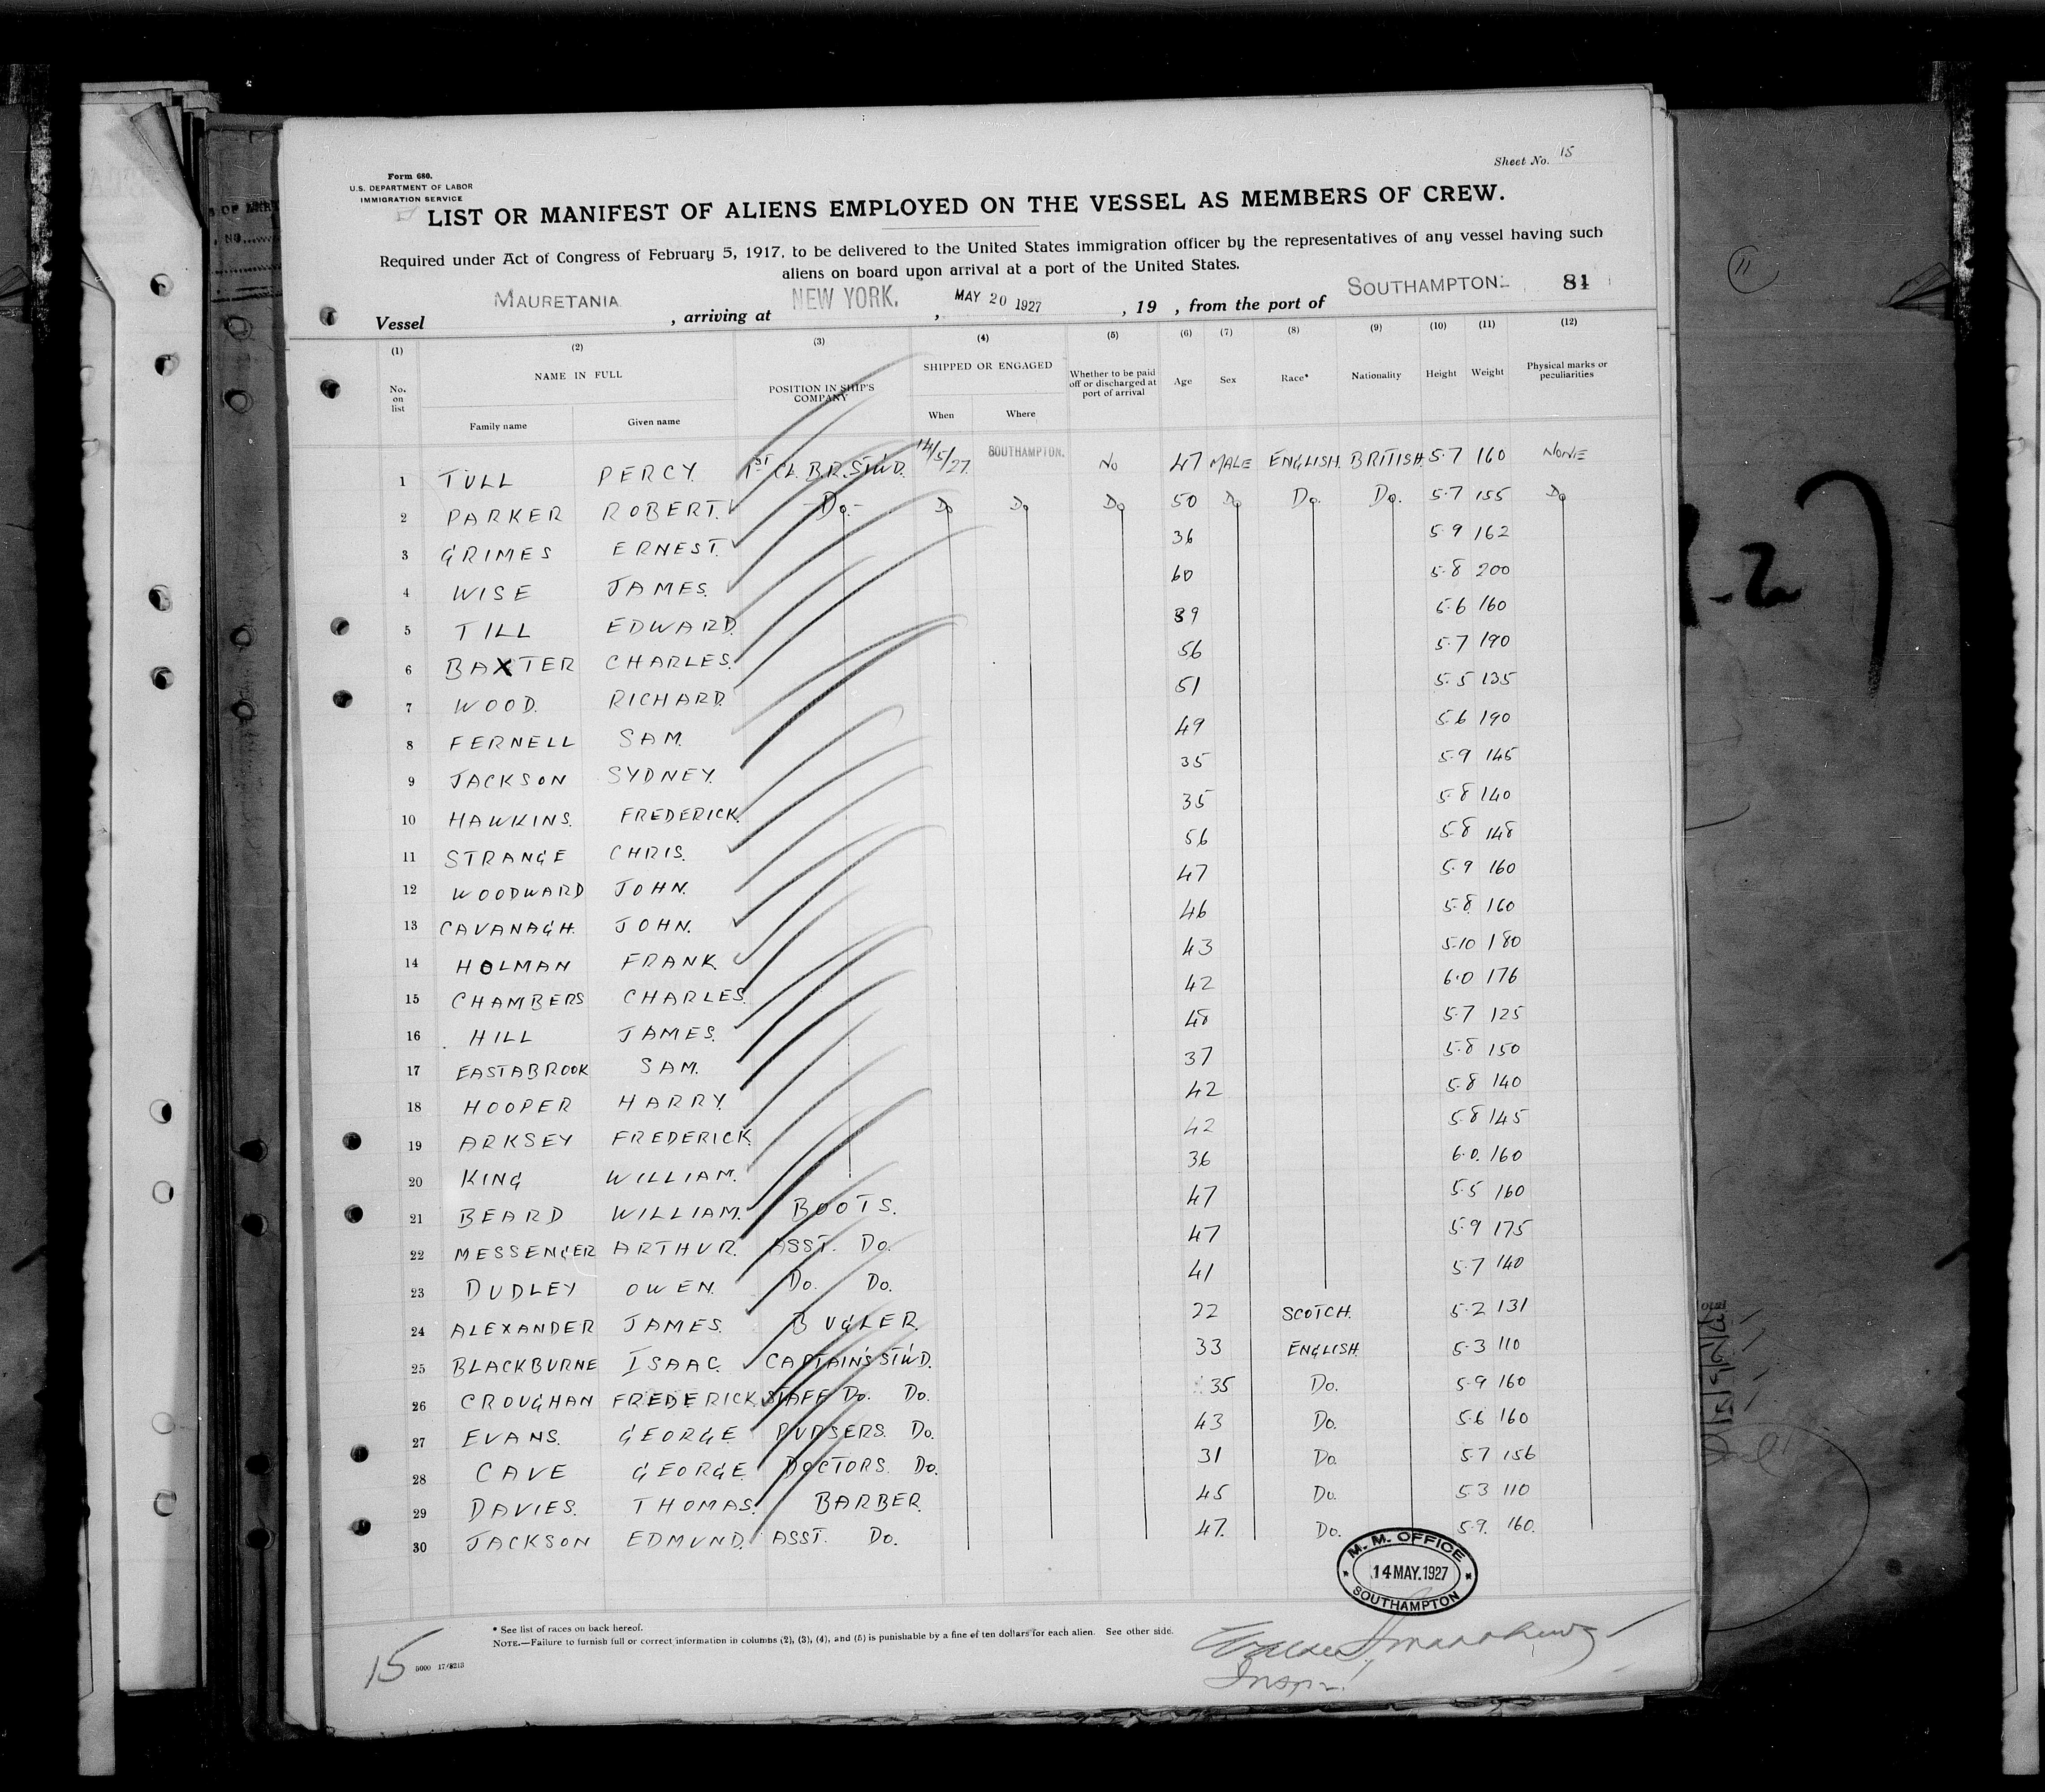 Sheet No. 15
Form 680.
U.S. DEPARTMENT OF LABOR
IMMIGRATION SERVICE
LIST OR MANIFEST OF ALIENS EMPLOYED ON THE VESSEL AS MEMBERS OF CREW.
Required under Act of Congress of February 5, 1917, to be delivered to the United States immigration officer by the representatives of any vessel having such
aliens on board upon arrival at a port of the United States.
Vessel MAURETANIA, arriving at NEW YORK., MAY 20 1927, 19 , from the port of SOUTHAMPTON. 81
(1) (2) (3) (4) (5) (6) (7) (8) (9) (10) (11) (12)
No. on list NAME IN FULL Family name Given name POSITION IN SHIP'S COMPANY SHIPPED OR ENGAGED When Where Whether to be paid off or discharged at port of arrival Age Sex Race* Nationality Height Weight Physical marks or peculiarities
1 TULL PERCY. 1ST CL. B.R. STW'D. 14/5/27. SOUTHAMPTON. NO 47 MALE ENGLISH. BRITISH. 5.7 160 NONE
2 PARKER ROBERT. -Do.- Do Do Do 50 Do Do. Do. 5.7 155 Do
3 GRIMES ERNEST. 36 5.9 162
4 WISE JAMES. 60 5.8 200
5 TILL EDWARD. 39 5.6 160
6 BAXTER CHARLES. 56 5.7 190
7 WOOD. RICHARD. 51 5.5 135
8 FERNELL SAM. 49 5.6 190
9 JACKSON SYDNEY. 35 5.9 145
10 HAWKINS. FREDERICK. 35 5.8 140
11 STRANGE CHRIS. 56 5.8 148
12 WOODWARD JOHN. 47 5.9 160
13 CAVANAGH. JOHN. 46 5.8. 160
14 HOLMAN FRANK. 43 5.10 180
15 CHAMBERS CHARLES. 42 6.0 176
16 HILL JAMES. 48 5.7 125
17 EASTABROOK SAM. 37 5.8 150
18 HOOPER HARRY. 42 5.8 140
19 ARKSEY FREDERICK. 42 5.8 145
20 KING WILLIAM. 36 6.0. 160
21 BEARD WILLIAM. BOOTS. 47 5.5 160
22 MESSENGER ARTHUR. ASST. Do. 47 5.9 175
23 DUDLEY OWEN. Do. Do. 41 5.7 140
24 ALEXANDER JAMES. BUGLER. 22 SCOTCH. 5.2 131
25 BLACKBURNE ISAAC. CAPTAIN'S STW'D. 33 ENGLISH. 5.3 110
26 CROUGHAN FREDERICK. STAFF Do. Do. 35 Do. 5.9 160
27 EVANS. GEORGE PURSERS. Do. 43 Do. 5.6 160
28 CAVE GEORGE. DOCTORS. Do. 31 Do 5.7 156
29 DAVIES. THOMAS. BARBER. 45 Do. 5.3 110
30 JACKSON EDMUND. ASST. Do. 47. Do. 5.9. 160.
M. M. OFFICE
14 MAY. 1927
SOUTHAMPTON
* See list of races on back hereof.
NOTE.—Failure to furnish full or correct information in columns (2), (3), (4), and (5) is punishable by a fine of ten dollars for each alien. See other side.
15
Inspr.